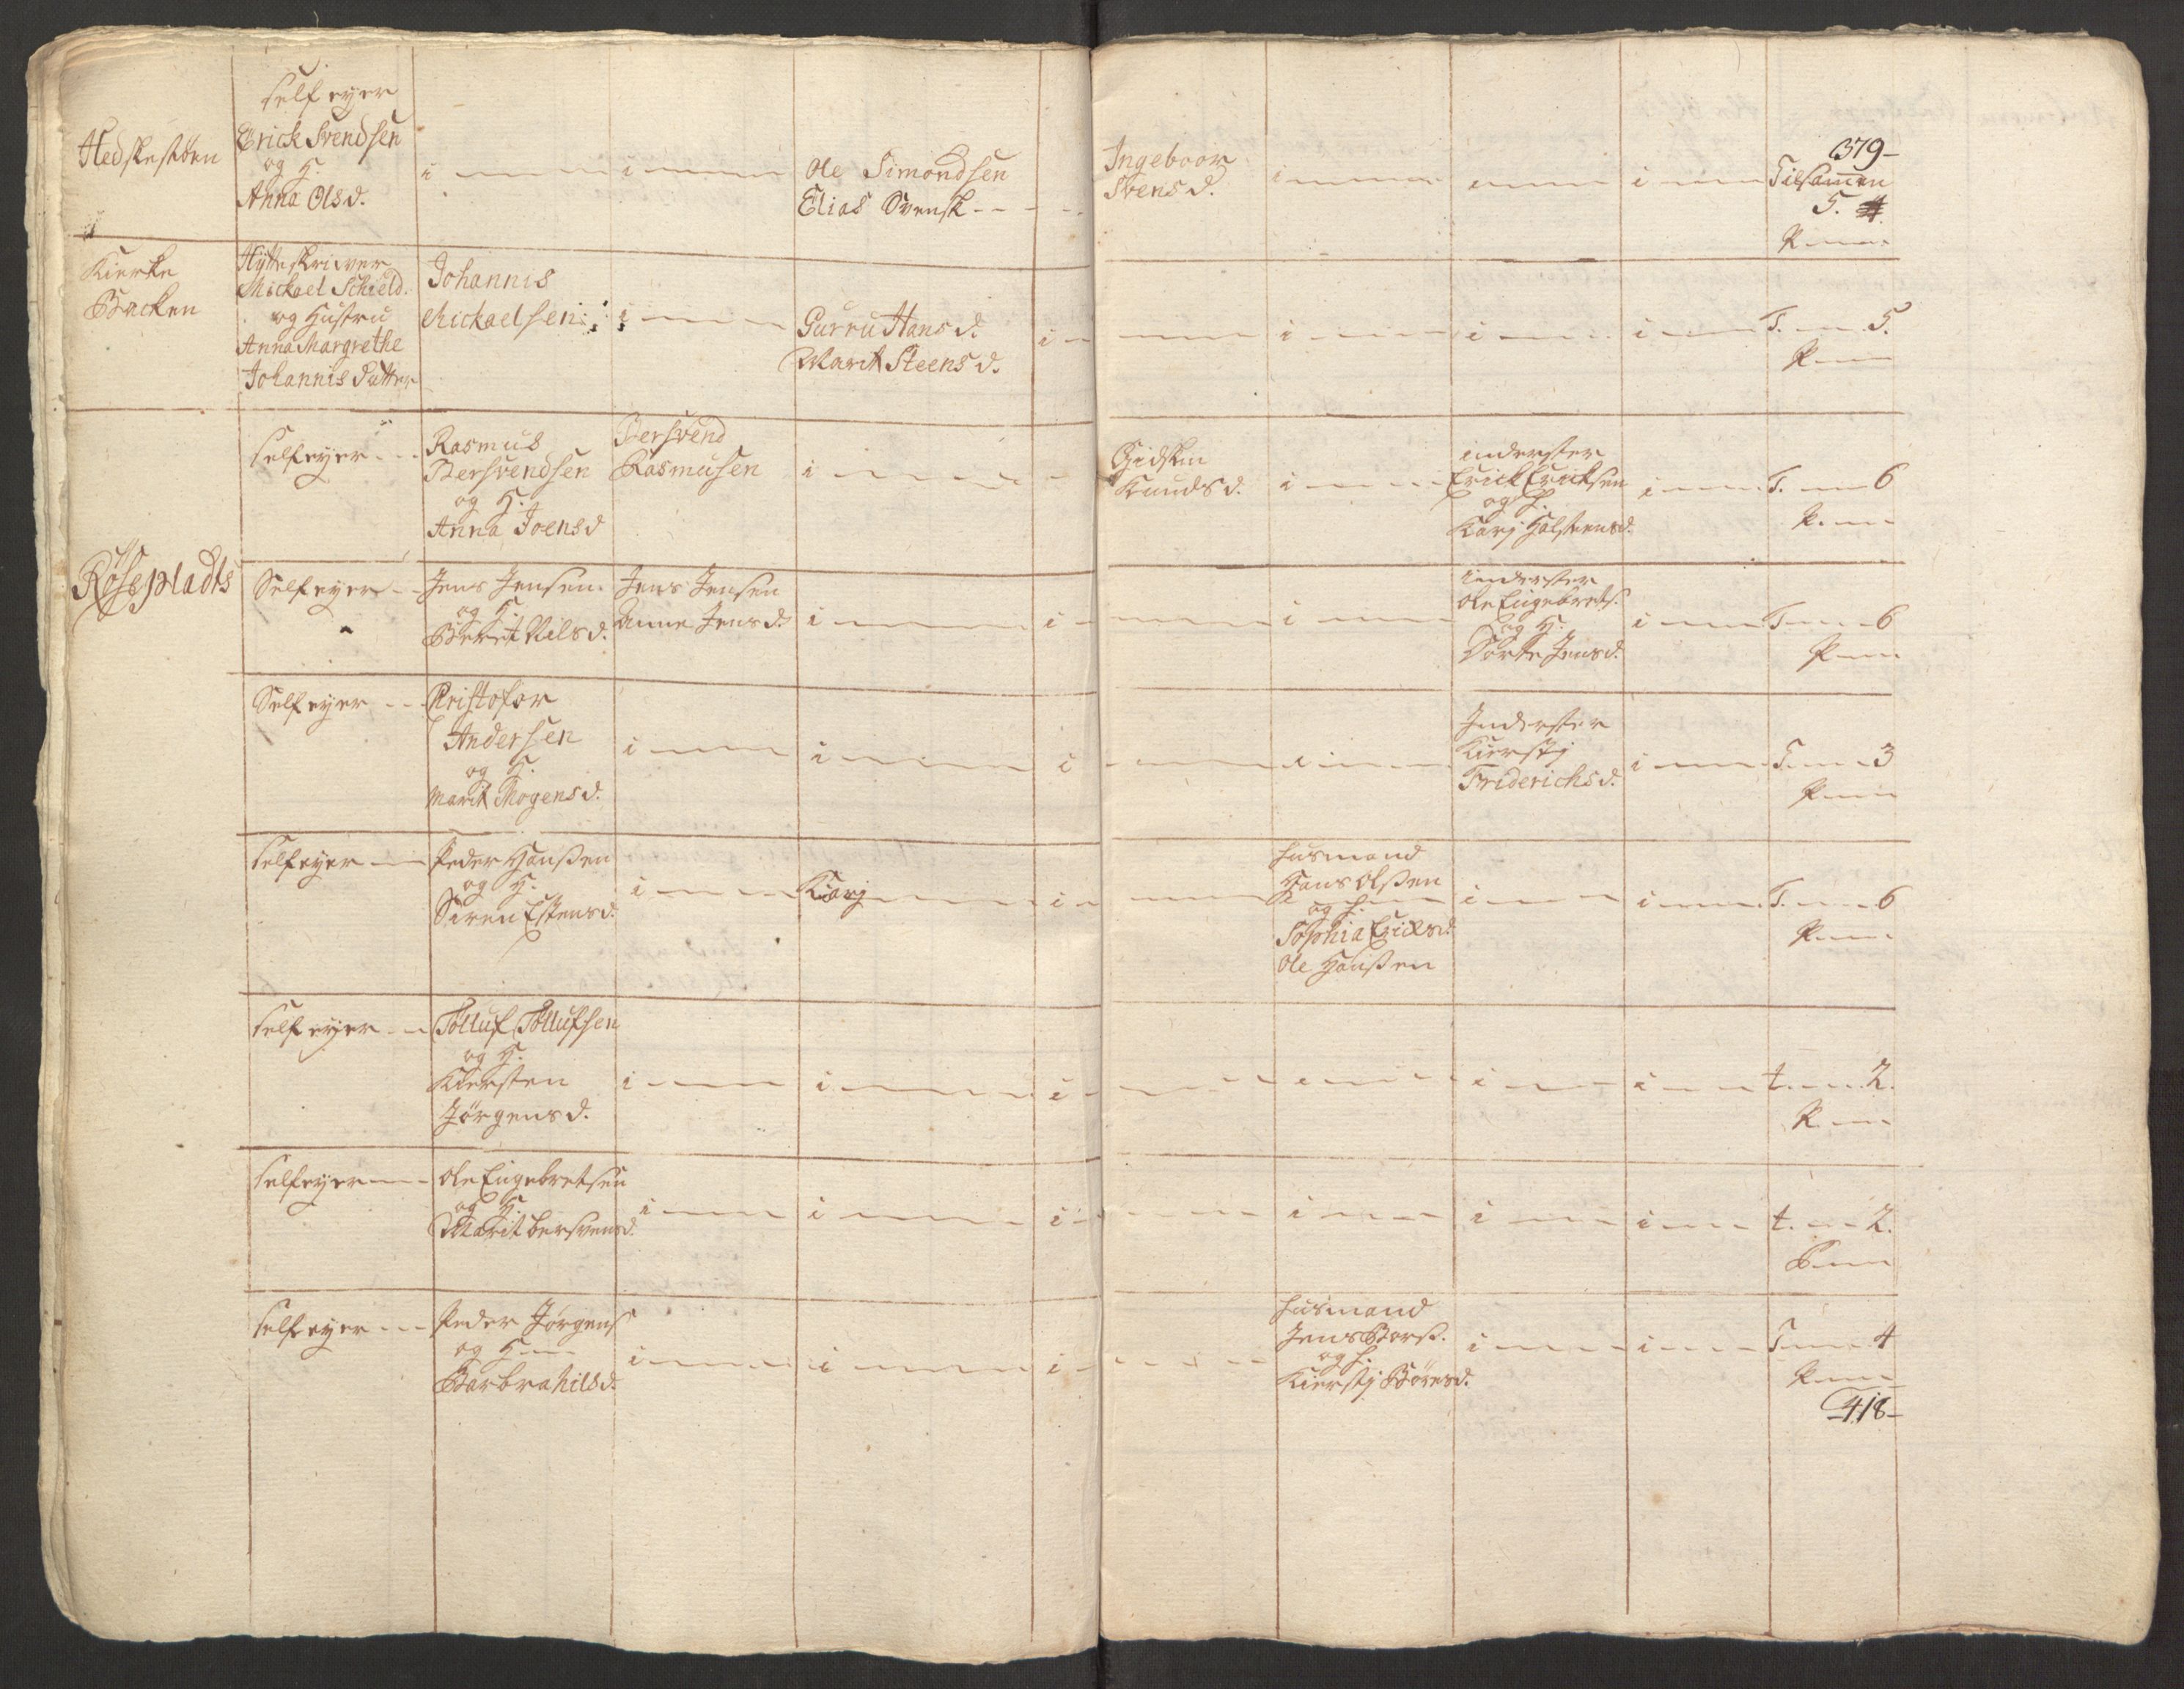 Hedskestøen
self eyer
Erick Svendsen
og H.
Anna Olsd.
i
i
Ole Simondsen
Elias Svensk
Ingeboor
Svensd.
i
i
379
Tilsamen
5.
P
Kierke
Backen
Hytteskriwer
Mickael Schield
og Hustru
Anna Margrethe
Johannis Datter
Johannis
Mickaelsen
i
Gurru Hansd.
Marit Steensd.
i
i
i
i
T. 5.
P
Røfsepladts
self eyer
Rasmus
Bersvendsen
og H.
Anna Joensd
Bersvend
Rasmusen
i
Gidsken
Knudsd.
i
inderster
Erick Ericksen
og H.
Karj Halsteensd.
i
T. 6
P
Self eyer
Jens Jensen
og H.
Beret Nilsd.
Jens Jensen
Anne Jensd.
i
i
i
inderster
Ole Engebrets.
og H.
Dorte Jensd.
i
T 6
P
Self eyer
Kristofor
Andersen
og H.
Marit Mogensd.
i
i
i
i
Inderster
Kierstj
Friderichsd.
i
T. 3
P
self eyer
Peder Hanßen
og H.
Siren Estensd.
i
Karj
i
husmand
Hans Olßen
og H.
Sophia Ericksd.
Ole Hanßen
i
i
T. 6
P
self eyer
Tolluf Tollufsen
og H.
Kiersten
Jørgensd.
i
i
i
i
i
t. 2.
P
self eyer
Ole Engebretsen
og H.
Marit bersvensd.
i
i
i
i
i
i
t. 2.
P
self eyer
Peder Jørgens
og H
Barbra Nilsd.
i
i
i
husmand
Jens Børß.
og H.
Kierstj Børesd.
i
i
T 4
P
418